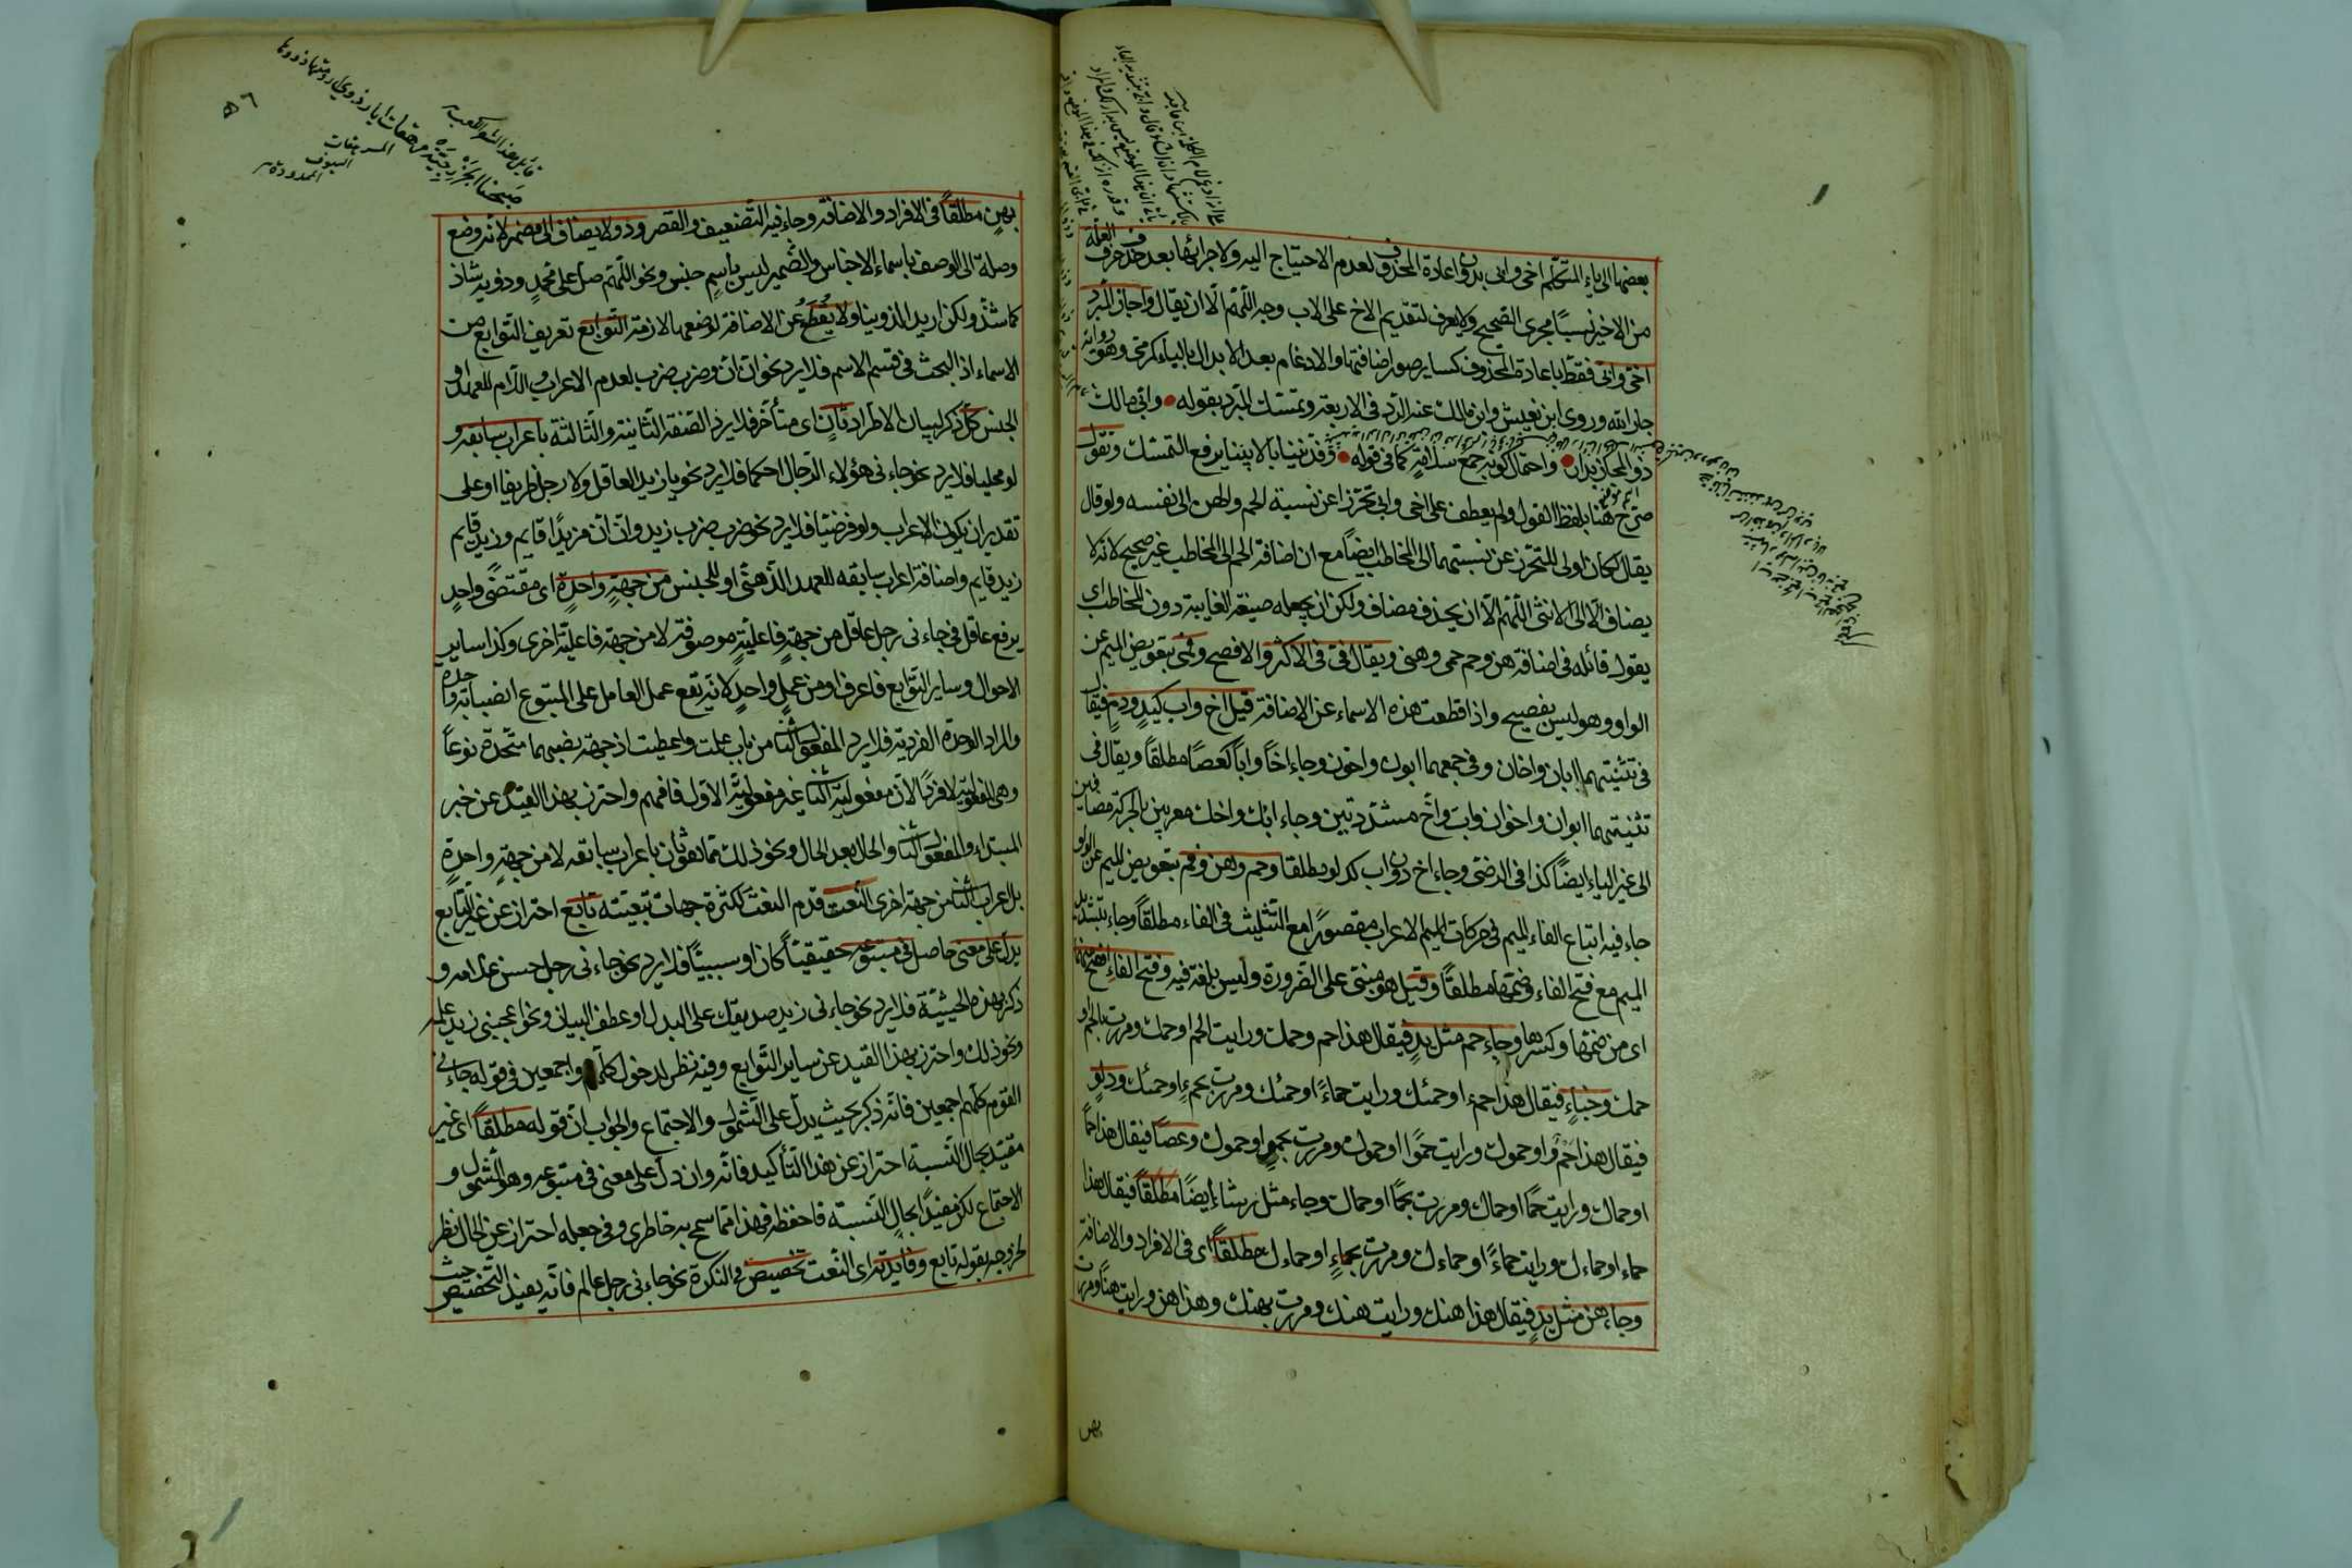 بعضها الى ياء المتكلم اخى وابى بدون اعادة المحذوف لعدم الاحتياج اليه ولاجرائها بعد حذف حرف العلة
من الاخير نسيا مجرى الصحيح ولا يعرف لتقديم الاخ على الاب وجه اللّهمّ الّا ان يقال واجاز المبرد
اخىّ وابىّ فقط باعادة المحذوف كساير صور اضافتها والادغام بعد الابدال بالياء كرمىّ وهو رواية
جار الله وروى ابن يعيش وابن مالك عنه الردّ فى الاربعة وتمسّك المبرد بقوله وابىّ مالك
ذو المجاز بدار واحتمال كونه جمع سلامة كما فى قوله وفدّيننا بالابينا يرفع التمسّك وتقول
صرّح هنا بلفظ القول ولم يعطف على اخى وابى تحرّزا عن نسبة الحم والهن الى نفسه ولو قال
يقال لكان اولى للتحرّز عن نسبتهما الى المخاطب ايضا مع ان اضافة الحم الى المخاطب غير صحيح لانه لا
يضاف الّا الى الانثى اللّهمّ الّا ان يحذف مضاف ولكن ان يجعله صيغة الغايبة دون المخاطب اى
يقول قائله فى اضافة هن وحم حمى وهنى ويقال فىّ فى الاكثر والافصح وفمى بتعويض الميم عن
الواو وهو ليس بفصيح واذا قطعت هذه الاسماء عن الاضافة قيل اخ واب كيد ودم فيقال
فى تثنيتهما ابان واخان وفى جمعهما ابون واخون وجاء اخًا وابًا كعصًا مطلقًا ويقال فى
تثنيتهما ابوان واخوان واب واخ مشدّدتين وجاء ابك واخك معربين بالحركة مضافين
الى غير الياء ايضًا كذا فى الرضى وجاء اخو واب كدلو مطلقا وحم وهن وفم بتعويض الميم عن الواو
جاء فيه اتباع الفاء الميم فى حركات الميم الاعراب مقصورًا مع التثليث فى الفاء مطلقًا وجاء بتشديد
الميم مع فتح الفاء وضمّها مطلقًا وقيل هو مبنى على الضرورة وليس بلغة فيه وفتح الفاء افصح منهما
اى من ضمّها وكسرها وجاء حم مثل يد فيقال هذا حم وحمك ورايت الحم او حمك ومررت بالحم او
حمك وخباء فيقال هذا حمء او حمئك ورايت حمأً او حمئك ومررت بحمء او حمئك ودلو
فيقال هذا حمو او حموك ورايت حموًا او حموك ومررت بحمو او حموك وعصًا فيقال هذا حمًا
او حماك ورايت حمًا او حماك ومررت بحمًا او حماك وجاء مثل رشاء ايضًا مطلقًا فيقال هذا
حماء او حماءك ورايت حماءً او حماءك ومررت بحماء او حماءك مطلقًا اى فى الافراد والاضافة
وجاء هن مثل يد فيقال هذا هنك ورايت هنك ومررت بهنك وهذا هن ورايت هنًا ومررت
بهن
بهنٍ مطلقًا فى الافراد والاضافة وجاء فيه التضعيف والقصر وذو لا يضاف الى مضمر لانه وضع
وصلة الى الوصف باسماء الاجناس والضمير ليس باسم جنس ونحو اللّهمّ صل على محمد وذويه شاذ
كما شذ ولكن اريد الذوينا ولا يقطع عن الاضافة لوضعها لازمة التوابع تعريف التوابع من
الاسماء اذ البحث فى قسم الاسم فلا يرد نحو ان ان وضرب ضرب لعدم الاعراب والّلام للعهد او
الجنس كل ذكر لبيان الاطراد ثان اى متأخر فلا يرد الصفة الثانية والثالثة باعراب سابقه و
لو محليا فلا يرد نحو جاءنى هؤلاء الرجال احكما فلا يرد نحو يا زيد العاقل ولا رجل ظريفا او على
تقدير ان يكون الاعراب ولو فرضيا فلا يرد نحو ضرب ضرب زيد وان ان زيدًا قايم وزيد قايم
زيد قايم واضافة اعراب سابقه للعهد الذهنى او للجنس من جهة واحدة اى مقتضى واحد
يرفع عاقل فى جاءنى رجل عاقل من جهة فاعلية موصوفة لا من جهة فاعلية اخرى وكذا ساير
الاحوال وساير التوابع فاعرف او من عمل واحد لانه يقع عمل العامل على المتبوع انصبابة واحدة
والمراد الوحدة الفردية فلا يرد المفعول الثانى من باب علمت واعطيت اذ جهة نصبهما متحدة نوعاً
وهى المفعولية لا فردًا لان مفعولية الثانى غير مفعولية الاول فافهم واحترز بهذا القيد عن خبر
المبتداء والمفعول الثانى والحال بعد الحال ونحو ذلك مما هو ثان باعراب سابقه لا من جهة واحدة
بل اعراب الثانى من جهة اخرى النعت قدم النعت لكثرة جهات تبعيته تابع احتراز عن غير التابع
يدل على معنى حاصل فى متبوعه حقيقيًا كان او سببيًا فلا يرد نحو جاءنى رجل حسن غلامه و
ذكر بهذه الحيثية فلا يرد نحو جاءنى زيد صديقك على البدل او عطف البيان ونحو اعجبنى زيد علمه
ونحو ذلك واحترز بهذا القيد عن ساير التوابع وفيه نظر لدخول كلهم واجمعين فى قوله جاءنى
القوم كلهم اجمعين فانه ذكر بحيث يدل على الشمول والاجتماع والجواب ان قوله مطلقًا اى غير
مقيّد بحال النسبة احتراز عن هذا التأكيد فانه وان دل على معنى فى متبوعه وهو الشمول و
الاجتماع لكن مقيدًا بحال النسبة فاحفظه فهذا مما سمح به خاطرى وفى جعله احتراز عن الحال نظر
لخروجه بقوله تابع وفايدته اى النعت تخصيص فى النكرة نحو جاءنى رجل عالم فانه يفيد التخصيص حيث
قايل هذا الشعر الكعب
صبحنا الخزرجية مرهفات ابار ذوى ارومتها ذووها
المرهفات
السيوف
المحدودة